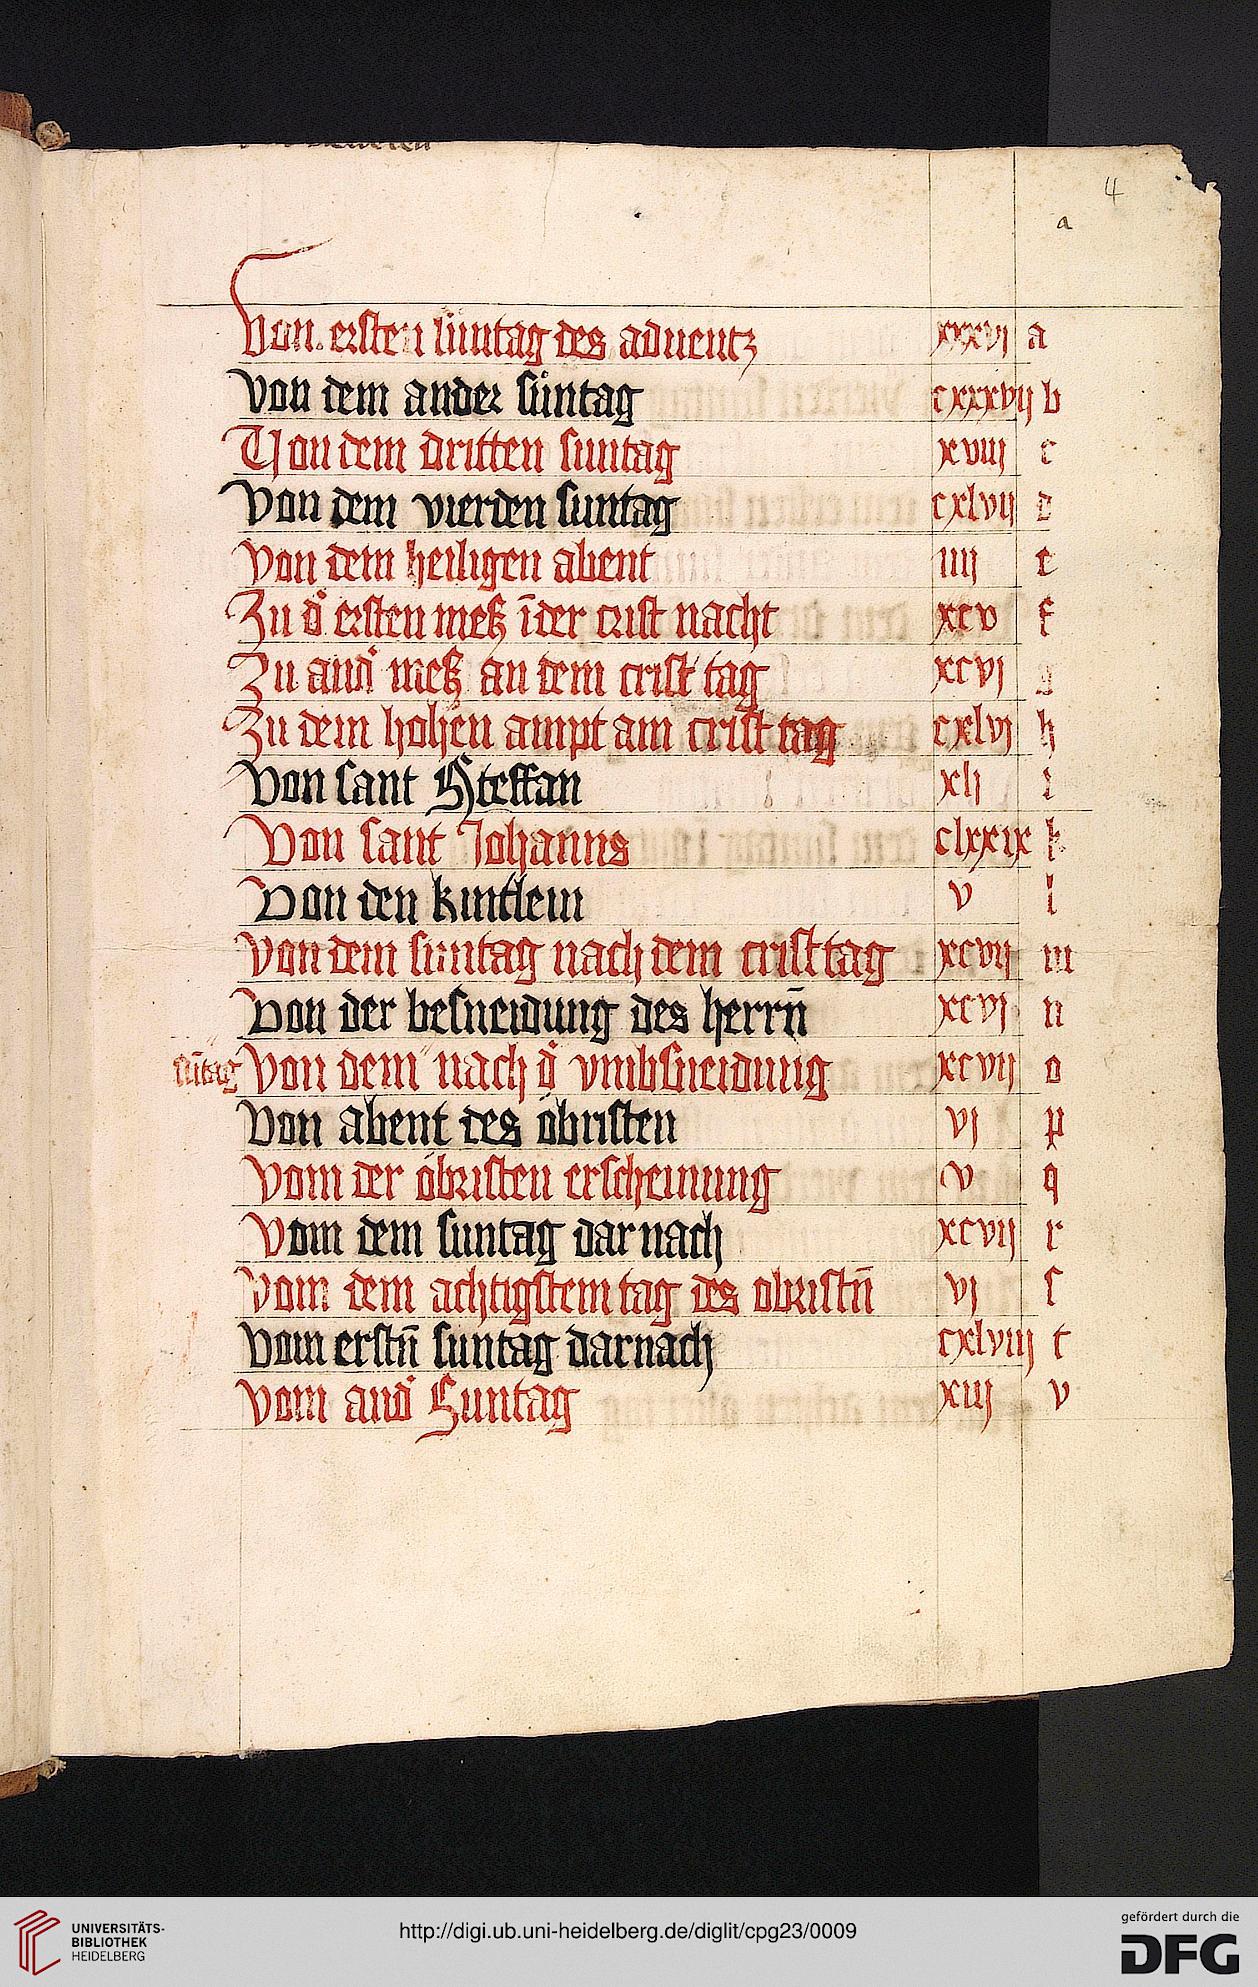 4
a
Von ersten suntag des aduentz xxxvj a
Von dem ander suͤntag cxxxvij b
Von dem dritten suntag xviij c
Von dem vierden suntag cxlvij d
Von dem heiligen abent iiij e
Zu d͛ ersten meß īder crist nacht xcv f
Zu and͛ meß an dem crist tag xcvj g
Zu dem hohen ampt am crist tag cxlvj h
Von sant Steffan xlj i
Von sant Johanns clxxix k
Von den kintlein v l
Von dem suntag nach dem cristtag xcvij m
Von der besneidung des herrn̄ xcvj n
sūtag Von dem " nach d͛ vmbsneidung xcvij o
Von abent des obristen vj p
Vom der obristen erscheinung v q
Vom dem suntag dar nach xcvij r
Vom dem achtigstem tag des obristn̄ vj s
Vom erstn̄ suntag darnach cxlviij t
Vom and͛ Suntag xiij v
UNIVERSITÄTS-
BIBLIOTHEK
HEIDELBERG
http://digi.ub.uni-heidelberg.de/diglit/cpg23/0009
gefördert durch die
DFG